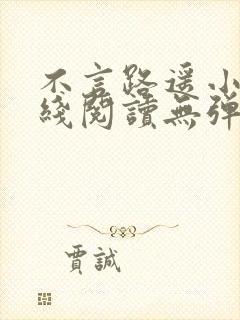 不言路遥小
綫閱讀無彈
賈誠